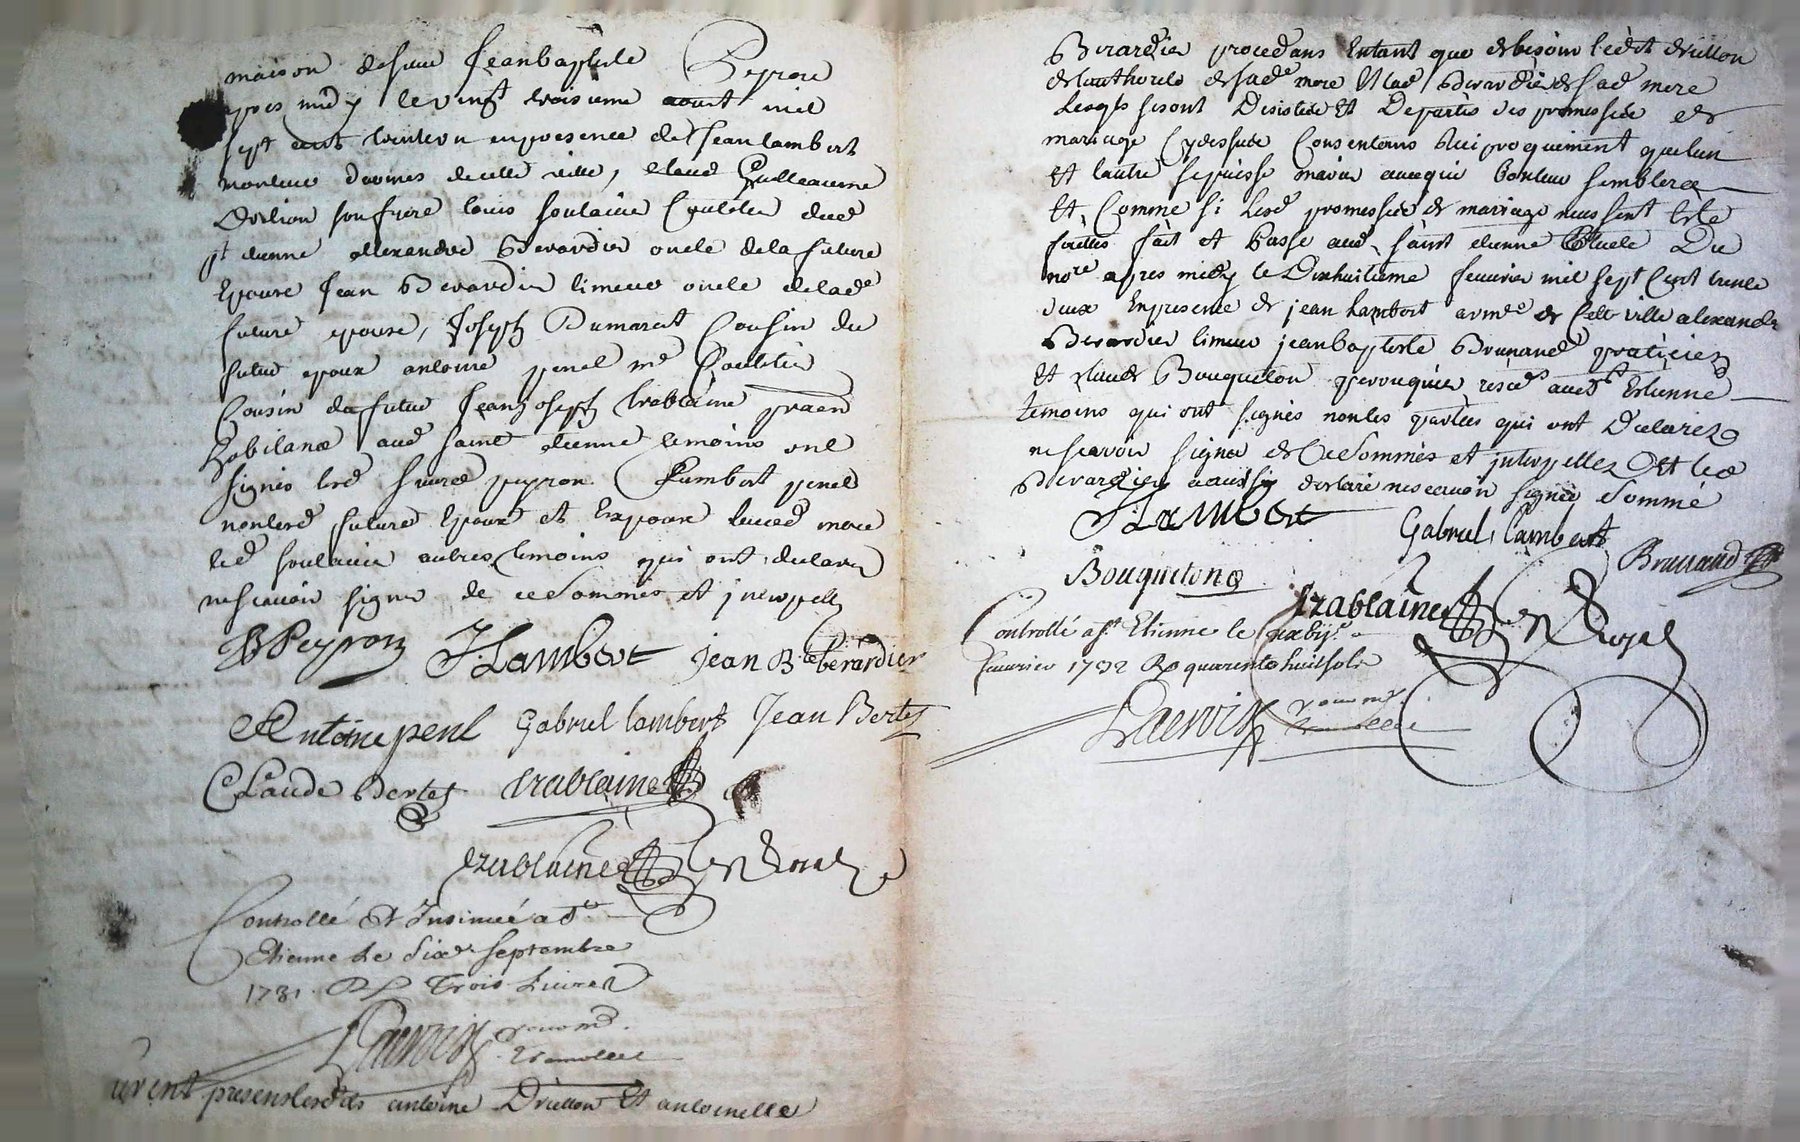 maison de sieur Jeanbaptiste Peyron
apres midy le vingt troisieme aoust mil
sept cent trente un en presence de Jean lambert
monteur darmes de cette ville, claud Guilleaume
Drilion son frere louis soulacire Coutelier dud
st etienne allexandre Berardier oncle de la future
Epouse Jean Berardier limeur oncle de lade
future epouse, Joseph Dumarest Cousin du
futur epoux antoine penel md Coutelier
Cousin du futur Jean Joseph trablaine praen
habitans aud saint etienne temoins ont
signés led sieur peyron Lambert penel
non lesd futurs Epoux et Expouse leursd mere
led soulacire autres temoins qui ont declarer
ne scavoir signer de ce Sommés et interpellés
JB Peyron J. Lambert Jean B.te berardier
Antoine penel Gabriel lambert Jean Bertet
Claude Bertet trablaine
trablaine
Controllé Et Insinué a St
Etienne Le Six Septembre
1731. R Trois Livres
urent presens lesdits antoine Drilion Et antoinette
Berardier procedans Entant que de besoin ledit drillon
de lauthorité de sade mere Et lad Berardier de sad mere
Lesqls se sont Desistée et Departis des promesses de
mariage Cydessus Consentans Reciproquement que lun
et lautre se puisse marier avec qui bon leur semblera
Et Comme si Lesd promesses de mariage neussent Esté
faittes fait et Passé aud saint etienne Etude Du
nore apres midy le Dixhuitieme fevrier mil sept Cent trente
deux En presence de jean Lambert arme de Cette ville alexandre
Berardier limeur jean baptiste Brunand praticien
et claude Bouqueton perouquier resids aud st Etienne
temoins qui ont signés non les parties qui ont Declarez
ne scavoir signer de Ce Sommés et interpellez Et led
Berardier aussi declaré ne scavoir signer Sommé
J. Lambert Gabriel Lambert
Bouqueton trablaine Brunand
Controllé a St Etienne le
fevrier 1732 R quarente huit sols